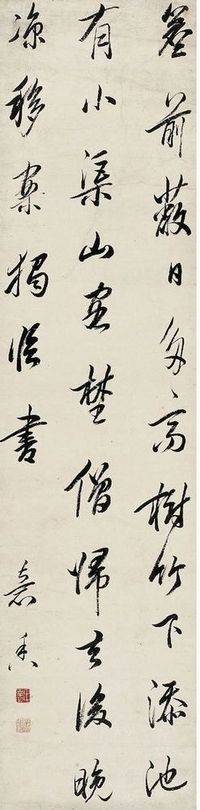 簷前蔽日多高樹竹下添池
有小渠山客埜僧歸去後晚
凉移案獨臨書
嘉